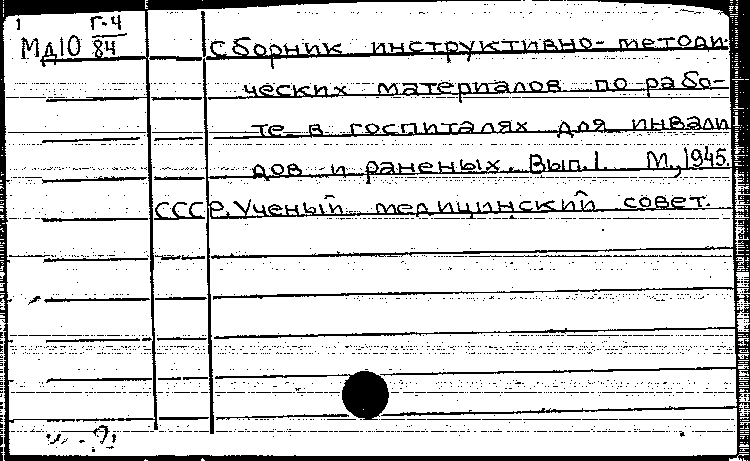 1 Г-4
МД10 84 Сборник инструктивно-методи-
ческих материалов по рабо-
те в госпиталях для инвали
дов и раненых. Вып.1. М.,1945.
СССР. Ученый медицинский совет.